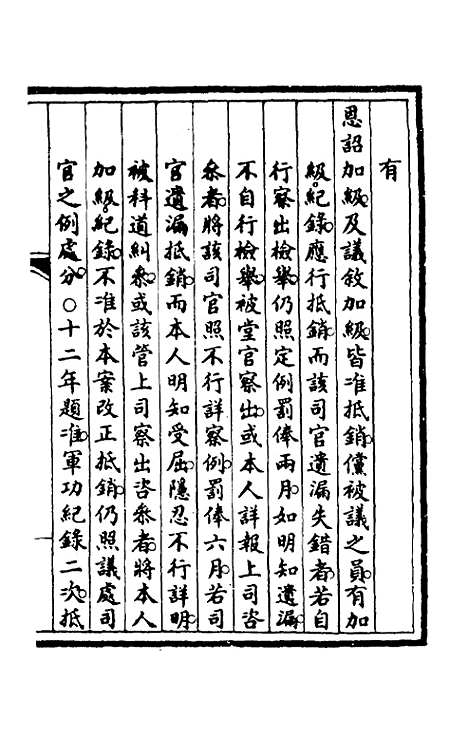 有
恩詔加級及議敘加級皆准抵銷儻被議之員有加
級紀錄應行抵銷而該司官遺漏失錯者若自
行察出檢舉仍照定例罰俸兩月如明知遺漏
不自行檢舉被堂官察出或本人詳報上司咨
叅者將該司官照不行詳察例罰俸六月若司
官遺漏抵銷而本人明知受屈隱忍不行詳明
被科道糾叅或該管上司察出咨叅者將本人
加級紀錄不准於本案改正抵銷仍照議處司
官之例處分○十二年題准軍功紀錄二次抵